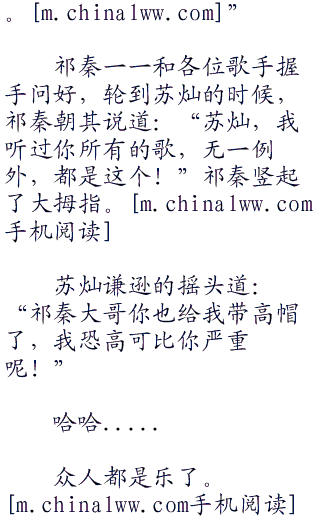 。[m.china1ww.com]”
祁秦一一和各位歌手握
手问好，轮到苏灿的时候，
祁秦朝其说道：“苏灿，我
听过你所有的歌，无一例
外，都是这个！”祁秦竖起
了大拇指。[m.china1ww.com
手机阅读]
苏灿谦逊的摇头道：
“祁秦大哥你也给我带高帽
了，我恐高可比你严重
呢！”
哈哈.....
众人都是乐了。
[m.china1ww.com手机阅读]